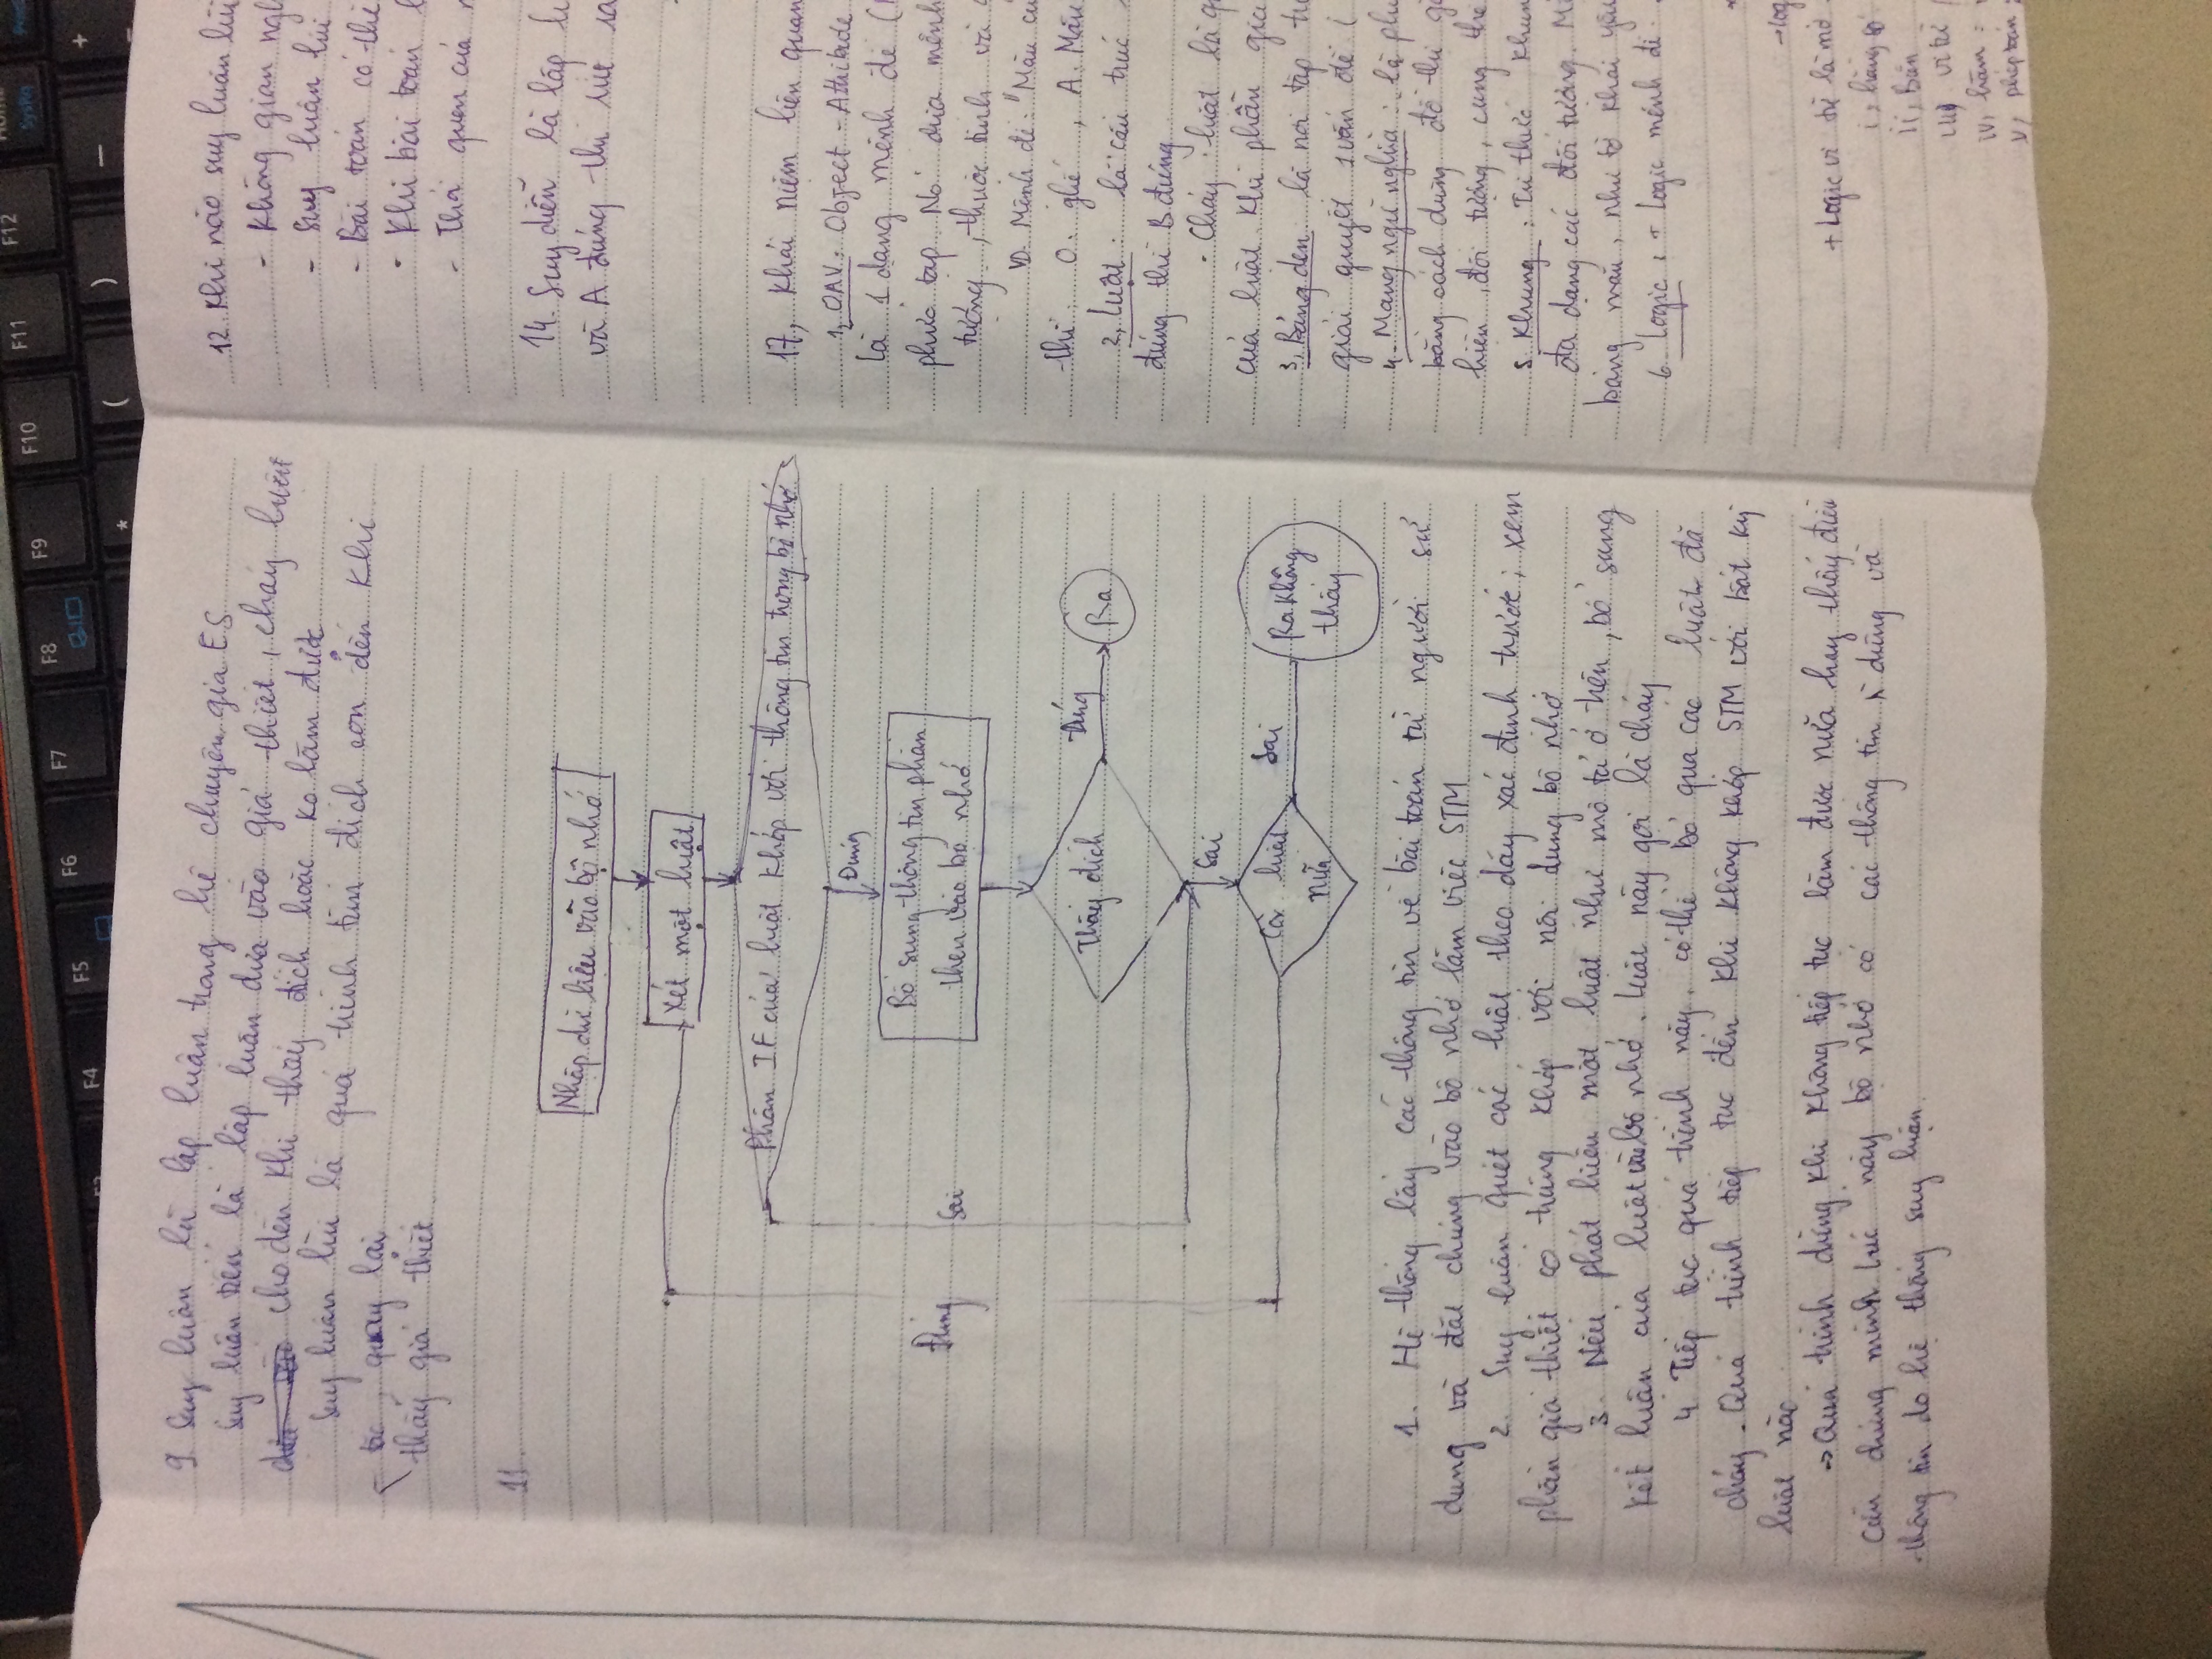 F4 F5 F6 F7 F8 F9 F10 F11 F12
SysRq
* ( ) — +
9. Suy luận là lập luận trong hệ chuyên gia ES
Suy luận tiến là lập luận dựa vào giả thiết, cháy luật
cho đến khi thấy đích hoặc ko làm được
Suy luận lùi là quá trình tìm đích con đến khi
quay lại
thấy giả thiết.
11.
Nhập dữ liệu vào bộ nhớ
Xét một luật
Phần IF của luật khớp với thông tin trong bộ nhớ
Đúng
Bổ sung thông tin phần
then vào bộ nhớ
Đúng
Sai
Thấy đích
Đúng
Ra
Sai
Còn luật
nữa
Sai
Ra không
thấy
1. Hệ thống lấy các thông tin về bài toán từ người sử
dụng và đặt chúng vào bộ nhớ làm việc STM
2. Suy luận quét các luật theo dãy xác định trước; xem
phần giả thiết có trùng khớp với nội dung bộ nhớ
3. Nếu phát hiện một luật như mô tả ở trên, bổ sung
kết luận của luật vào bộ nhớ. Luật này gọi là cháy
4 Tiếp tục quá trình này, có thể bỏ qua các luật đã
cháy. Quá trình tiếp tục đến khi không khớp STM với bất kỳ
luật nào
→ Quá trình dừng khi không tiếp tục làm được nữa hay thấy điều
cần chứng minh lúc này bộ nhớ có các thông tin dùng và
thông tin do hệ thống suy luận.
12. Khi nào suy luận lùi
- Không gian
- Suy luận lùi
- Bài toán có thể
- Khi bài toán
- Thả quen của
14. Suy diễn là lập
và A đúng thì rút ra
17, Khái niệm liên quan
1, OAV: Object - Attribute
là 1 dạng mệnh đề
phức tạp. Nó đưa mệnh
tượng, thuộc tính và
VD. Mệnh đề: "Màu
thì: O: ghế, A: Màu
2, Luật: là cấu trúc
đúng thì B đúng
- Cháy luật là
của luật khi phần giả
3, Bảng đen là nơi tập
giải quyết 1 vấn đề (
4. Mạng ngữ nghĩa: là
bằng cách dùng đồ thị
hiện, đối tượng, cung
5. Khung: Tri thức
đa dạng các đối tượng.
bảng mẫu, như tờ khai
6. Logic: + Logic mệnh đề
+ Logic vị từ là mở
i, hằng số
ii, Biến
iii) vị từ
iv, hàm:
v, phép toán: